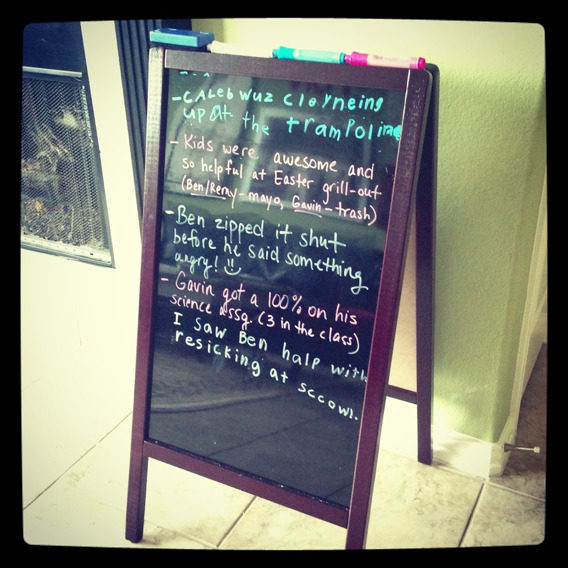 -CALeb wuz cleyneing
up at the trampoline
- Kids were awesome and
so helpful at Easter grill-out
(Ben/Remy-mayo, Gavin-trash)
-Ben zipped it shut
before he said something
angry!
- Gavin got a 100% on his
science assg. (3 in the class)
I saw Ben halp with
resicking at sccowl.